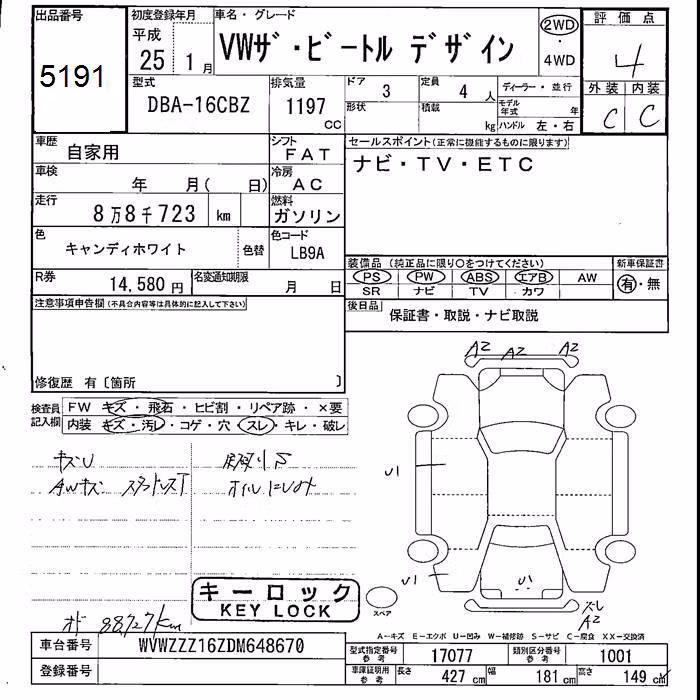 出品番号
5191
初度登録年月
平成
25 1月
車名・グレード
VWザ・ビートル デザイン
2WD
・
4WD
評価点
4
外装 内装
C C
型式
DBA-16CBZ
排気量
1197
cc
ドア
3
定員
4 人
形状
積載
kg
ディーラー・並行
モデル年式 年
ハンドル 左・右
車歴
自家用
シフト
FAT
車検
年 月( 日)
冷房
AC
走行
8万8千723 km
燃料
ガソリン
色
キャンディホワイト
色替
色コード
LB9A
R券
14,580円
名変通知期限
月 日
セールスポイント(正常に機能するものに限ります)
ナビ・TV・ETC
装備品 (純正品に限り○をつけてください)
PS PW ABS エアB AW
SR ナビ TV カワ
新車保証書
有・無
後日品
保証書・取説・ナビ取説
注意事項申告欄(不具合内容等は具体的に記入して下さい)
修復歴 有〔箇所 〕
検査員記入欄
FW キズ・飛石・ヒビ割・リペア跡・×要
内装 キズ・汚レ・コゲ・穴・スレ・キレ・破レ
キズU
AWキズ
オイルにじみ
A2 A2 A2
U1
U1
U1
スレ
A2
スペア
キーロック
KEY LOCK
オド 88727km
A-キズ E-エクボ U-凹み W-補修跡 S-サビ C-腐食 XX-交換済
車台番号
WVWZZZ16ZDM648670
登録番号
型式指定番号 参考
17077
類別区分番号 参考
1001
車庫証明用 参考
長さ 427cm 幅 181cm 高さ 149cm